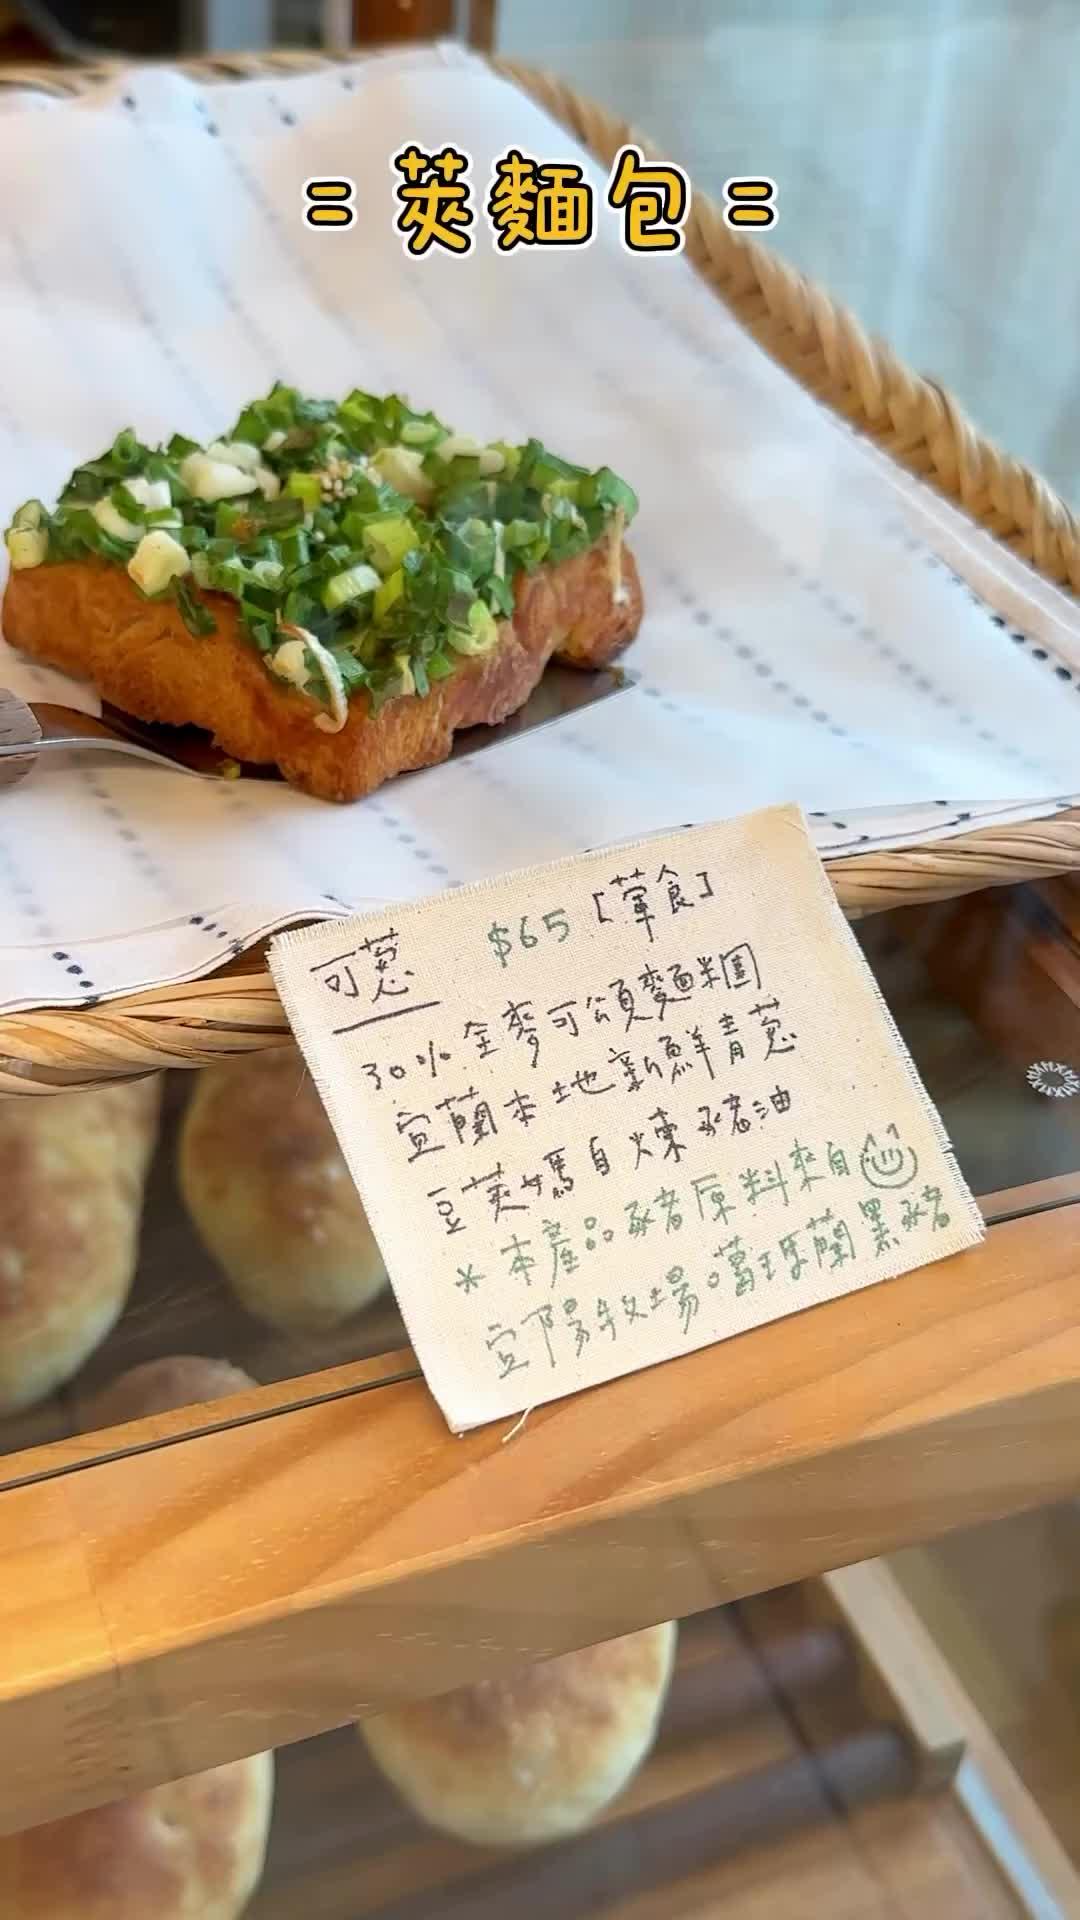 = 莢麵包 =
可蔥 $65 [葷食]
30% 全麥可頌麵糰
宜蘭本地新鮮青蔥
豆莢媽自煉豬油
* 本產品豬原料來自
宜陽牧場。葛瑪蘭黑豬